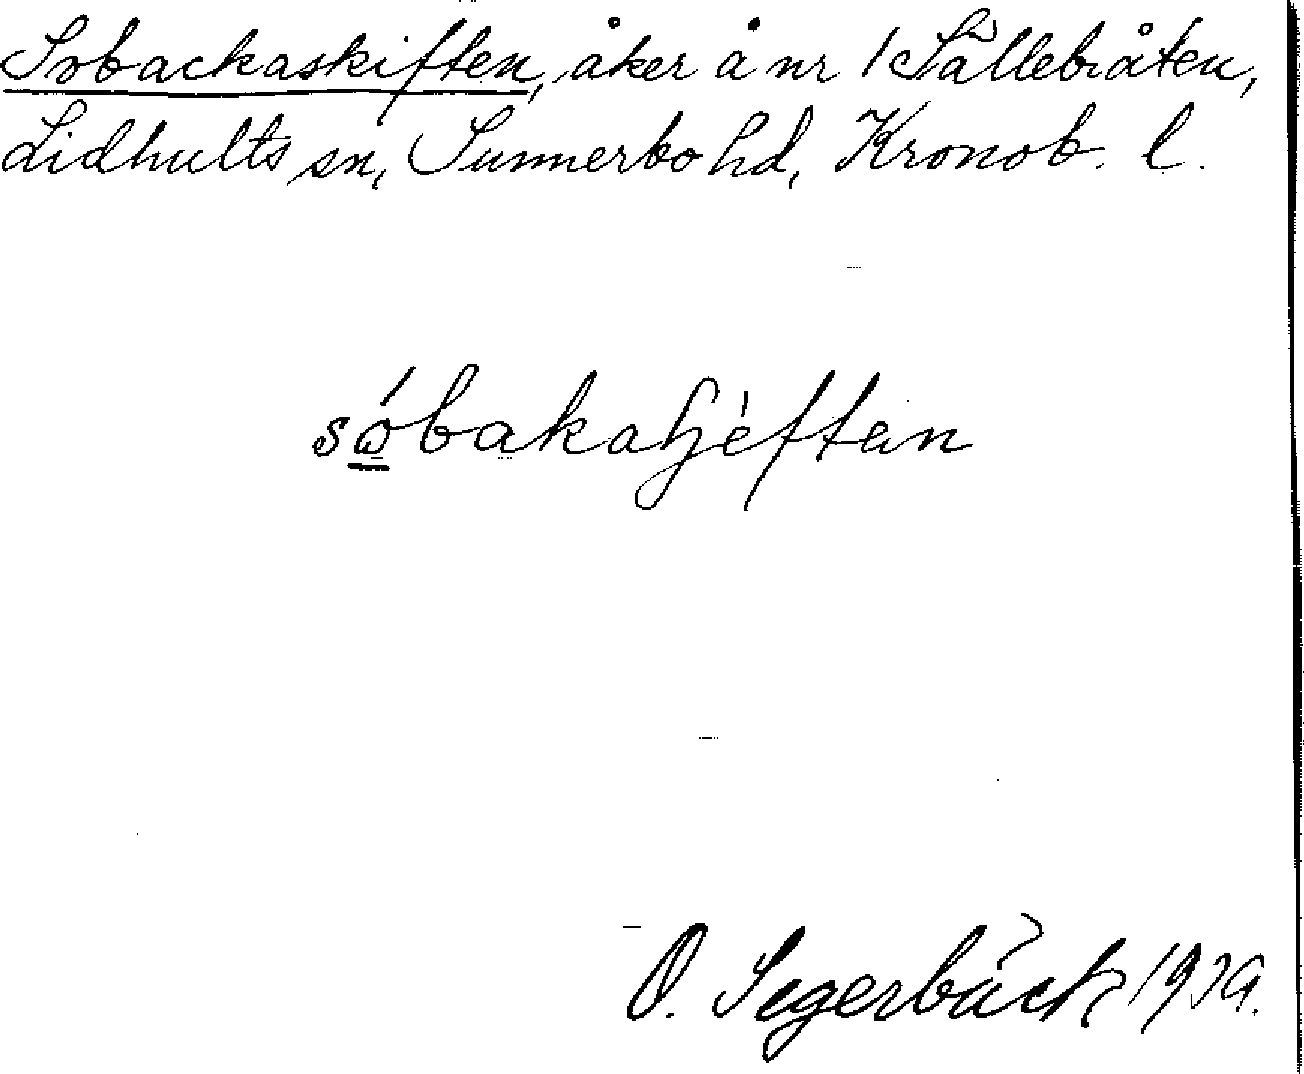 Sobackaskiften, åker å nr 1 Sällebråten,
Lidhults sn, Sunnerbo hd, Kronob. l.
O. Segerbäck 1939.